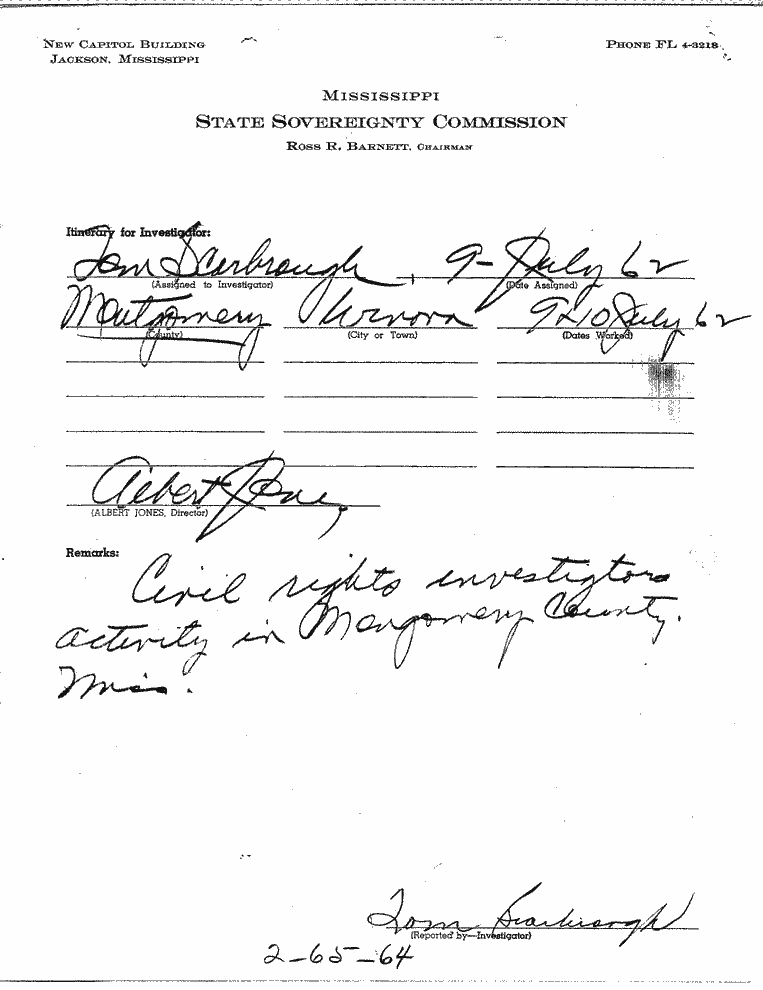 NEW CAPITOL BUILDING
JACKSON, MISSISSIPPI
PHONE FL 4-3218
MISSISSIPPI
STATE SOVEREIGNTY COMMISSION
ROSS R. BARNETT, CHAIRMAN
Itinerary for Investigator:
Tom Scarbrough, 9-July 62
(Assigned to Investigator) (Date Assigned)
Montgomery Winona 9-10 July 62
(County) (City or Town) (Dates Worked)
Albert Jones
(ALBERT JONES, Director)
Remarks:
Civil rights investigtors
activity in Mongomery County.
Miss.
Tom Scarbrough
(Reported by—Investigator)
2-65-64